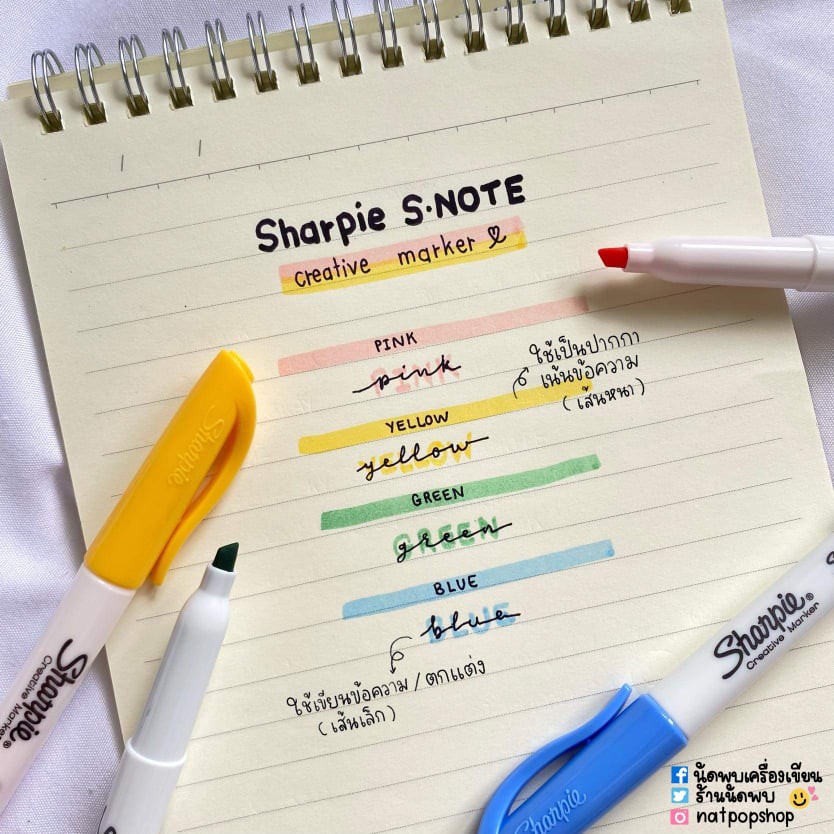 Sharpie S·NOTE
creative marker
PINK
PINK
pink
ใช้เป็นปากกา
เน้นข้อความ
(เส้นหนา)
YELLOW
YELLOW
yellow
GREEN
GREEN
green
BLUE
BLUE
blue
ใช้เขียนข้อความ / ตกแต่ง
(เส้นเล็ก)
Sharpie
Sharpie®
Creative Marker
Sharpie®
Creative Marker
Sharpie
นัดพบเครื่องเขียน
ร้านนัดพบ
natpopshop